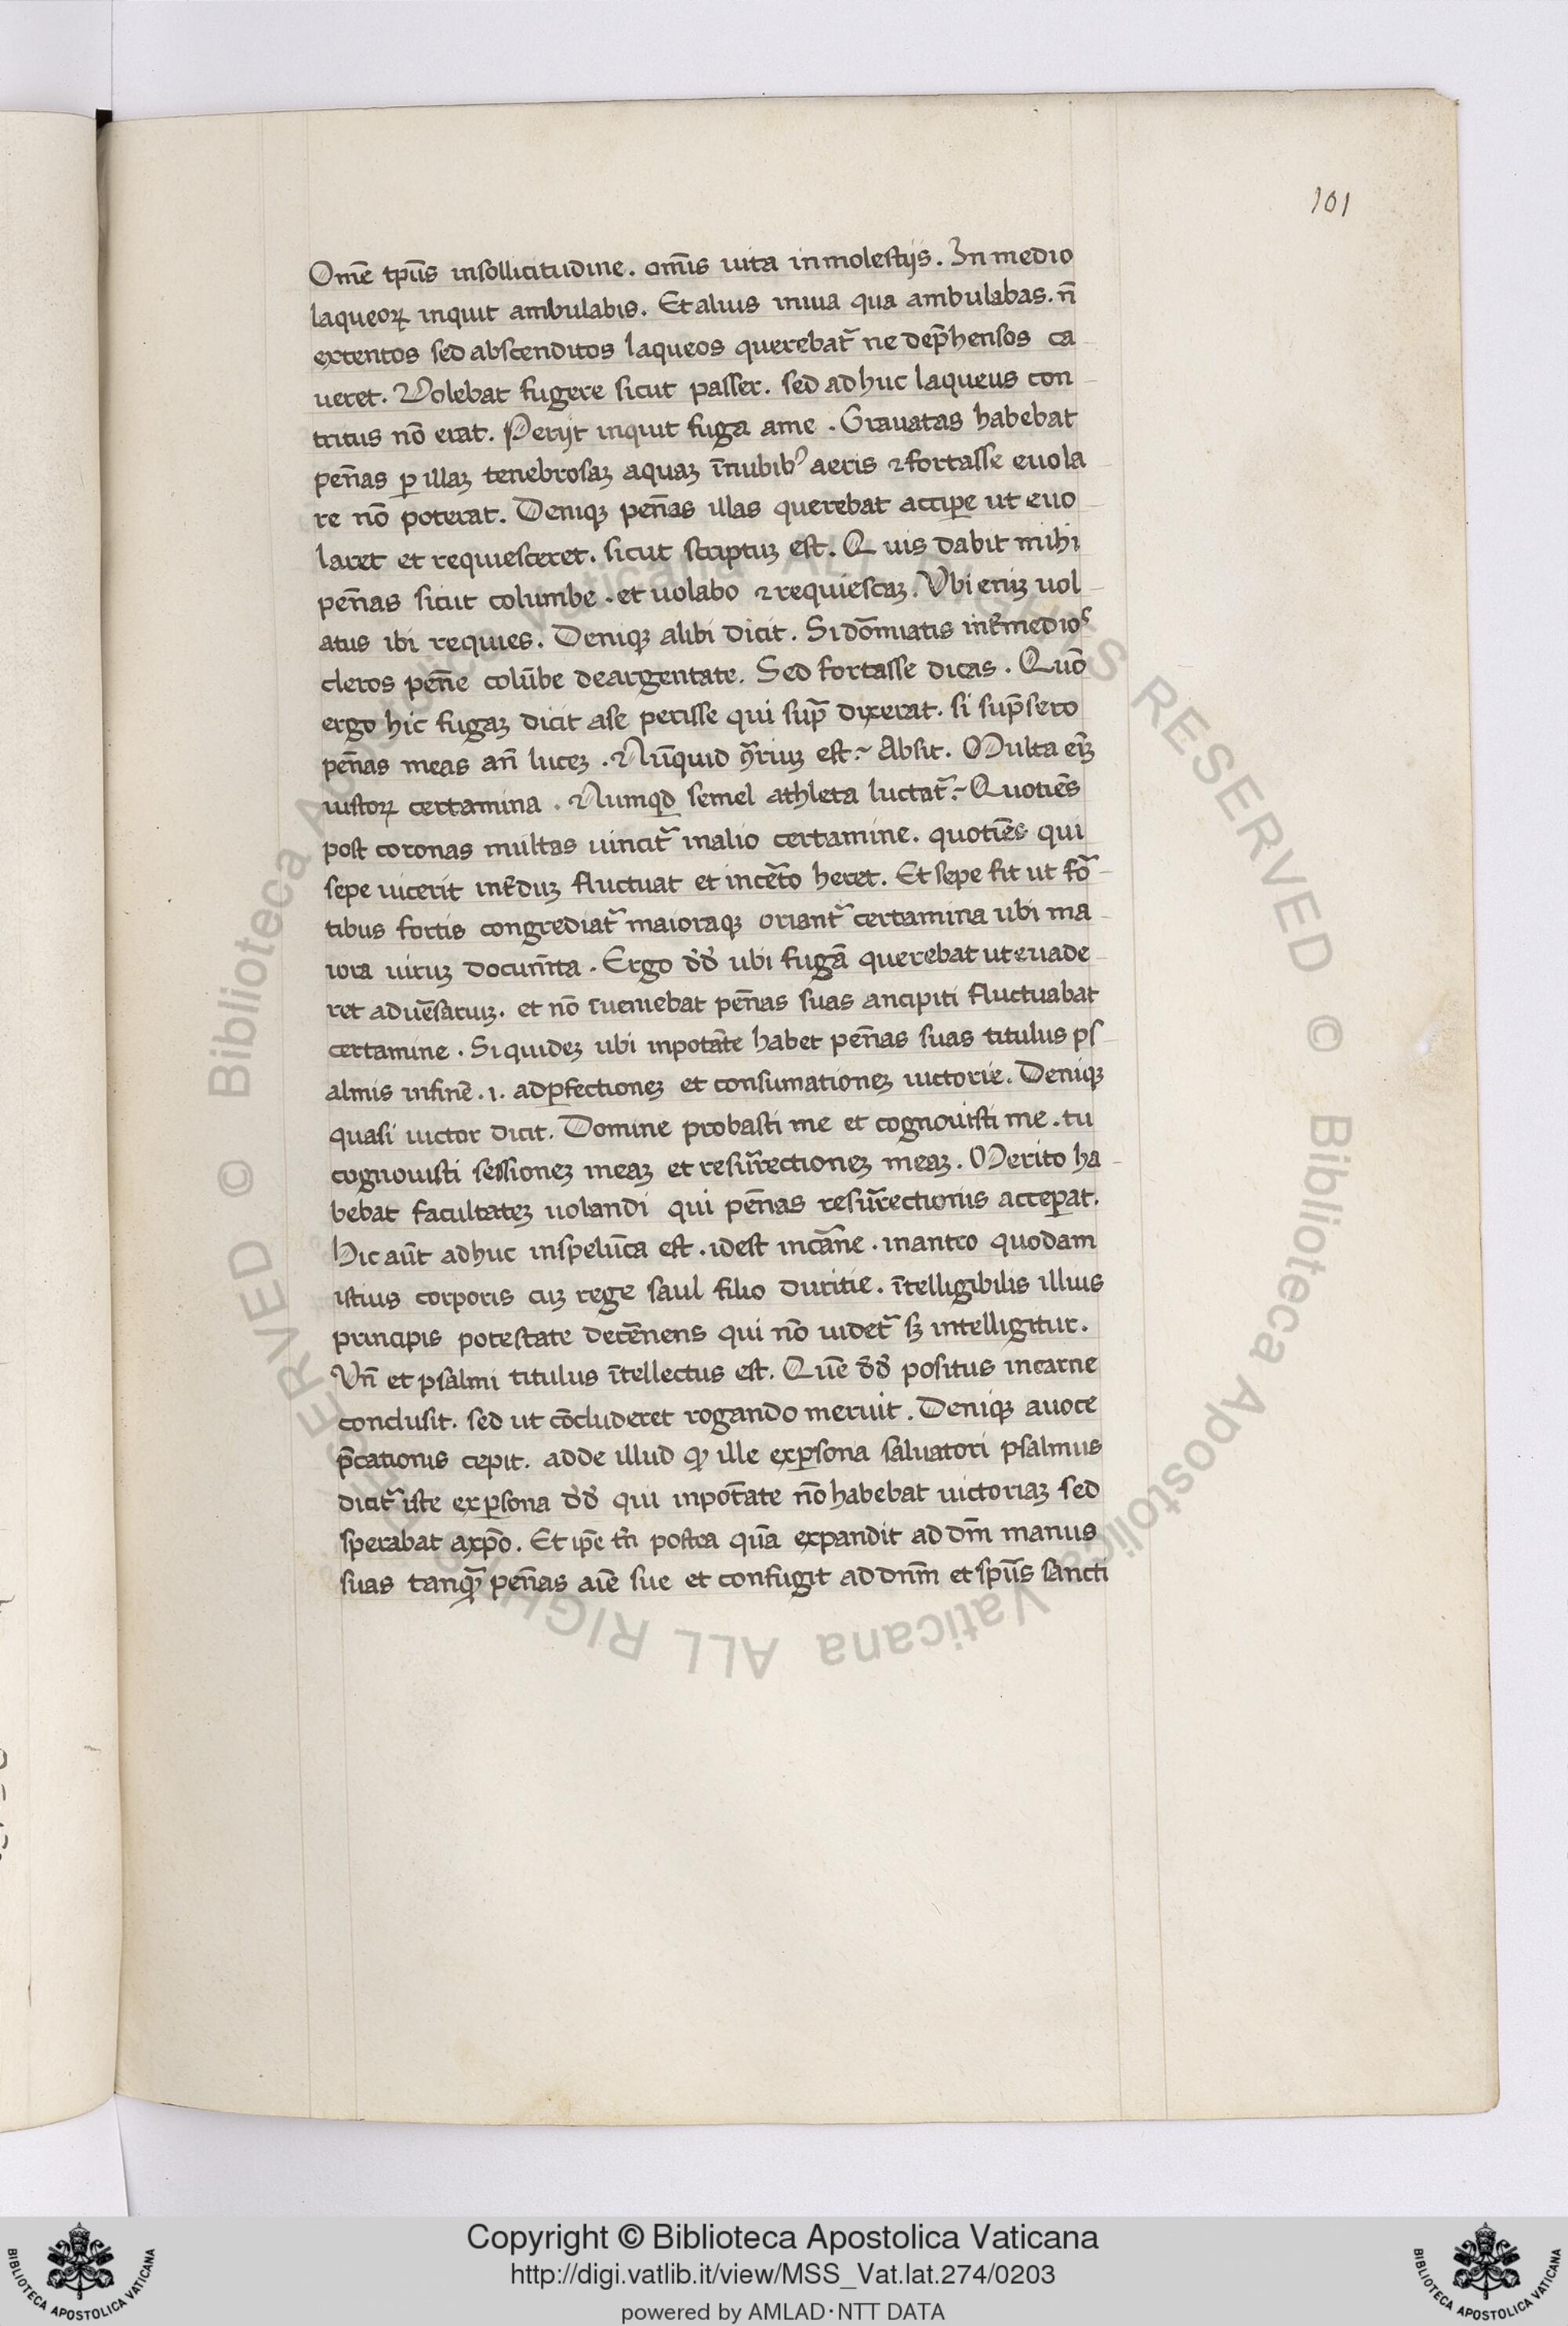 101
Om̄e tp̄us insollicitudine. om̄is uita inmolestijs. In medio
laqueoꝝ inquit ambulabis. Et alius inuia qua ambulabas. n̄
extentos sed abscenditos laqueos querebat᷑ ne dep̄hensos ca
ueret. Volebat fugere sicut passer. sed adhuc laqueus con
tritus nō erat. Perijt inquit fuga ame. Grauatas habebat
pen̄as ꝑ illaꝫ tenebrosaꝫ aquaꝫ īnubibꝰ aeris ⁊ fortasse euola
re nō poterat. Deniqꝫ pen̄as illas querebat acciꝑe ut euo
laret et requiesceret. sicut scriptuꝫ est. Quis dabit mihi
pen̄as sicut columbe. et uolabo ⁊ requiescaꝫ. Vbi eniꝫ uol
atus ibi requies. Deniqꝫ alibi dicit. Si dōmiatis int̄medioˢ
cleros pen̄e colūbe deargentate. Sed fortasse dicas. Quō
ergo hic fugaꝫ dicit ase perisse qui sup̄ dixerat. si sup̄sero
pen̄as meas an̄ luceꝫ. Nūquid ɔ̄riuꝫ est. Absit. Multa ei̅ꝫ
iustoꝝ certamina. Numqd̄ semel athleta luctat᷑. Quotiēs
post coronas multas uincit᷑ inalio certamine. quotiēs qui
sepe uicerit int̄duꝫ fluctuat et incēto heret. Et sepe fit ut fo᷑
tibus fortis congrediat᷑ maioraqꝫ oriant᷑ certamina ubi ma
iora uiriuꝫ docum̄ta. Ergo d̄d̄ ubi fugā querebat ut euade
ret aduēsariuꝫ. et nō īueniebat pen̄as suas ancipiti fluctuabat
certamine. Si quideꝫ ubi inpotāte habet pen̄as suas titulus ps
almis infinē. i. adꝑfectioneꝫ et consumationeꝫ uictorie. Deniqꝫ
quasi uictor dicit. Domine probasti me et cognouisti me. tu
cognouisti sessioneꝫ meaꝫ et resur̄rectioneꝫ meaꝫ. Merito ha
bebat facultateꝫ uolandi qui pen̄as resur̄rectionis acceꝑat.
Hic aūt adhuc inspelūca est. idest incār̄ne. inantro quodam
istius corporis cuꝫ rege saul filio duritie. ītelligibilis illius
principis potestate decēnens qui nō uidet᷑ sꝫ intelligitur.
Vn̄ et psalmi titulus ītellectus est. Quē d̄d̄ positus incarne
conclusit. sed ut cōcluderet rogando meruit. Deniqꝫ auoce
p̄cationis cepit. adde illud ꝙ ille exꝑsona saluatori psalmus
dicit᷑ iste exꝑsona d̄d̄ qui inpot̄ate nō habebat uictoriaꝫ sed
sperabat axp̄o. Et ip̄e tn̄ postea quā expandit ad dm̄ manus
suas tanqꝫ̄ pen̄as aīe sue et confugit ad dnm̄ et sp̄us sancti
Copyright © Biblioteca Apostolica Vaticana
http://digi.vatlib.it/view/MSS_Vat.lat.274/0203
powered by AMLAD·NTT DATA